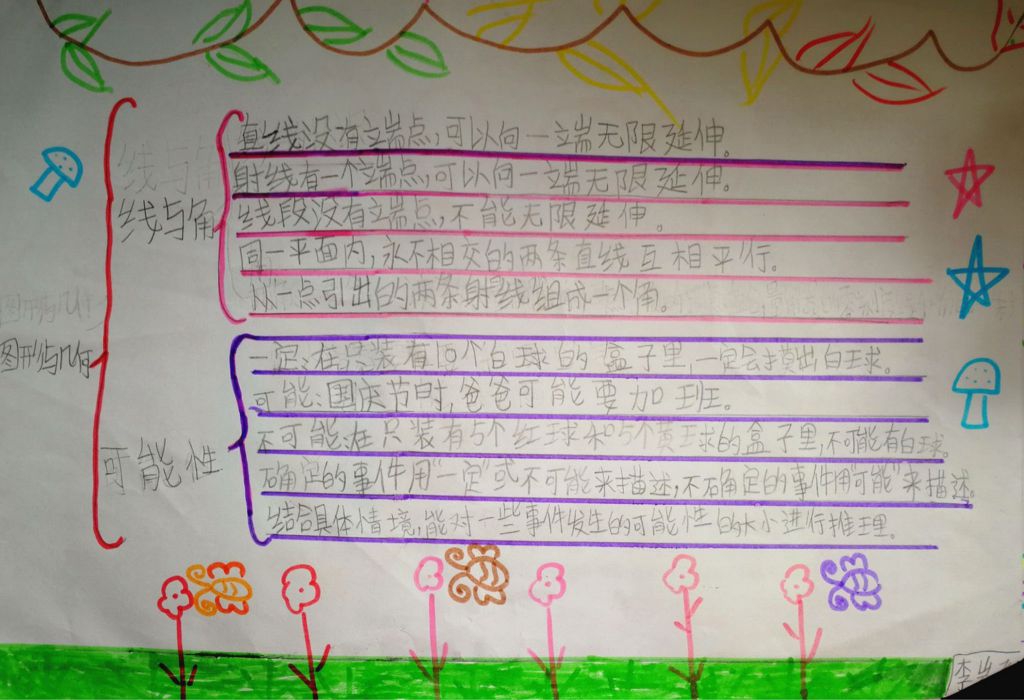 直线没有端点,可以向一端无限延伸。
射线有一个端点,可以向一端无限延伸。
线与角
线段没有端点,不能无限延伸。
同一平面内,永不相交的两条直线互相平行。
从一点引出的两条射线组成一个角。
图形与几何
一定:在只装有10个白球的盒子里,一定会摸出白球。
可能:国庆节时,爸爸可能要加班。
不可能:在只装有5个红球和5个黄球的盒子里,不可能有白球。
可能性
确定的事件用“一定”或不可能来描述,不确定的事件用“可能”来描述。
结合具体情境,能对一些事件发生的可能性的大小进行推理。